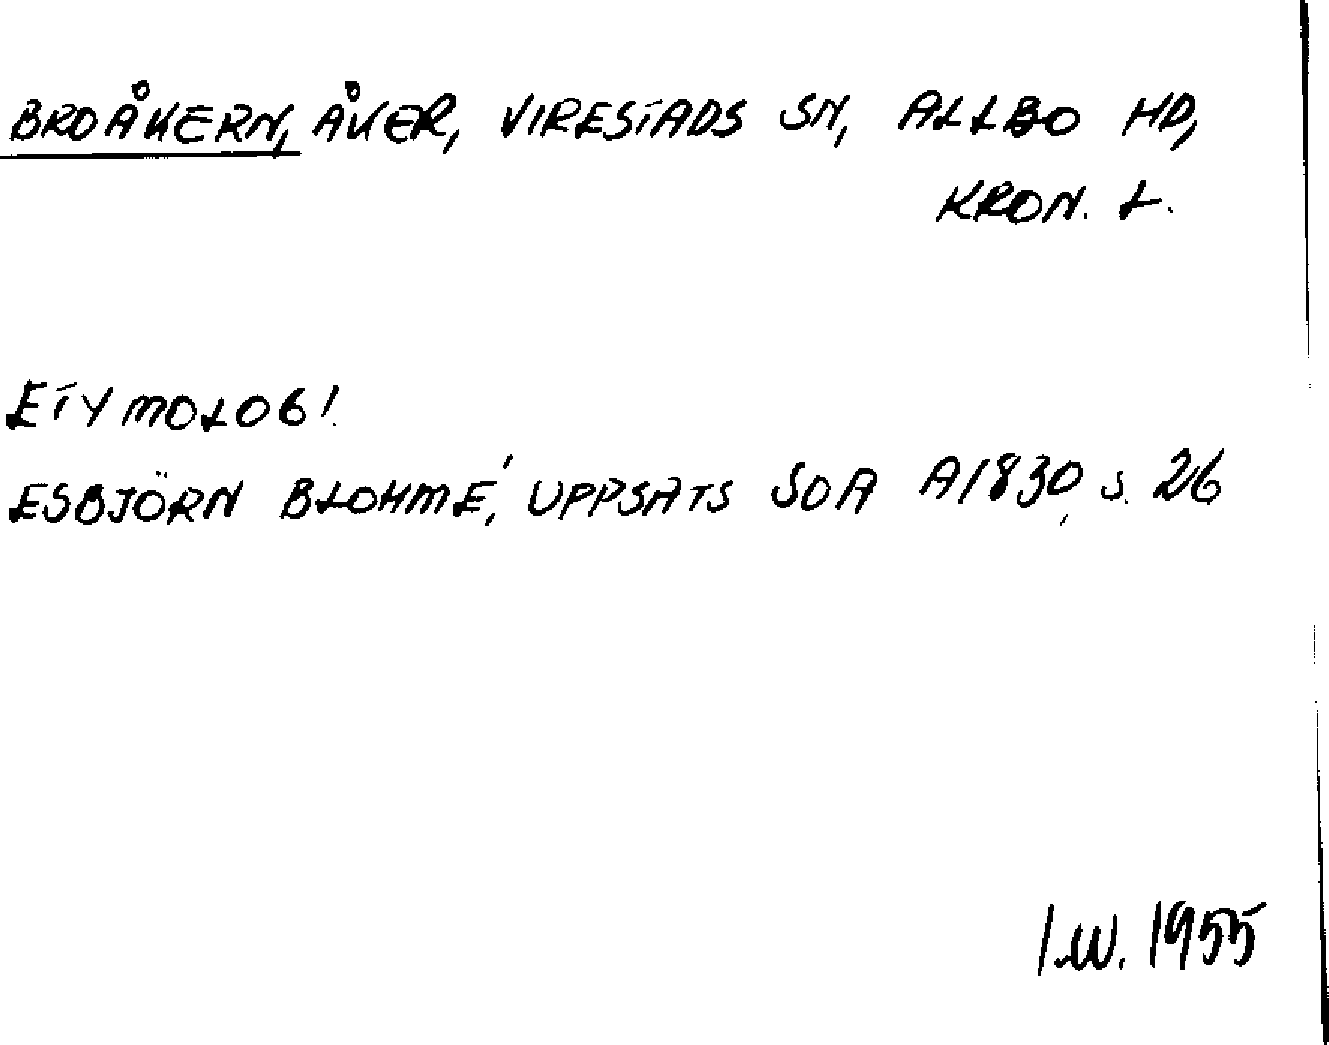 BROÅKERN, ÅKER, VIRESTADS SN, ALLBO HD,
KRON. L.
ETYMOLOGI
ESBJÖRN BLOHMÉ, UPPSATS SOA A1830, S. 26
I.W. 1955